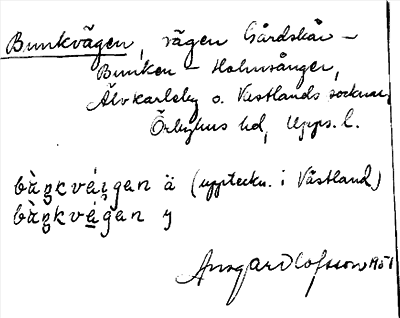 Bunkvägen, vägen Gårdskär –
Bunken – Holmsånger,
Älvkarleby o. Västlands socknar,
Örbyhus hd, Upps. l.
bàŋkvéi̯gen ä (uppteckn. i Västland)
bàŋkvégen y
Ansgar Olofsson 1951